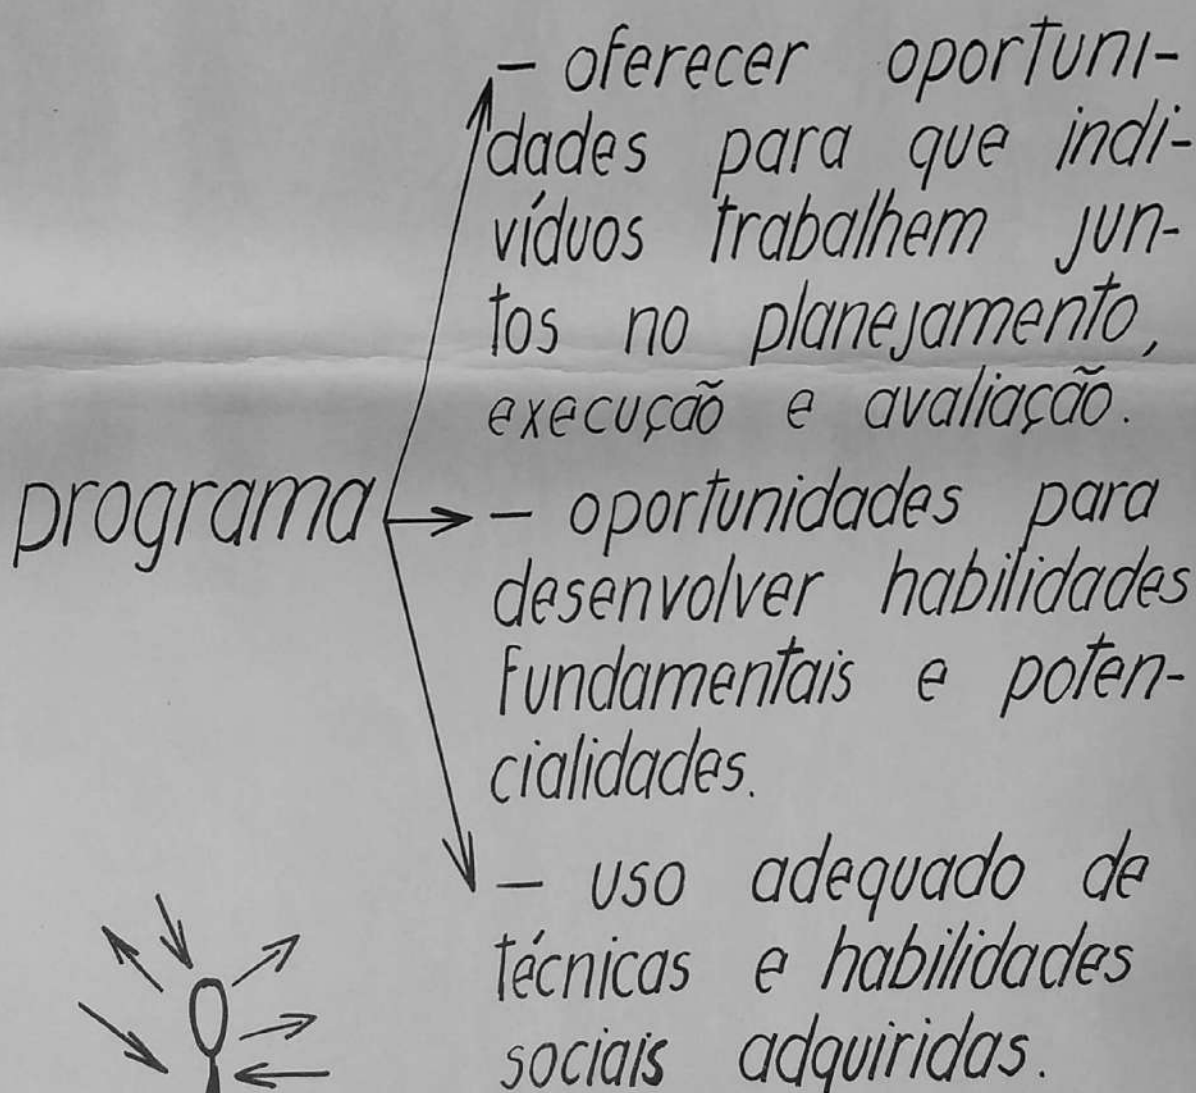 – oferecer oportuni-
dades para que indi-
víduos trabalhem jun-
tos no planejamento,
execução e avaliação.
programa – oportunidades para
desenvolver habilidades
fundamentais e poten-
cialidades.
– uso adequado de
técnicas e habilidades
sociais adquiridas.